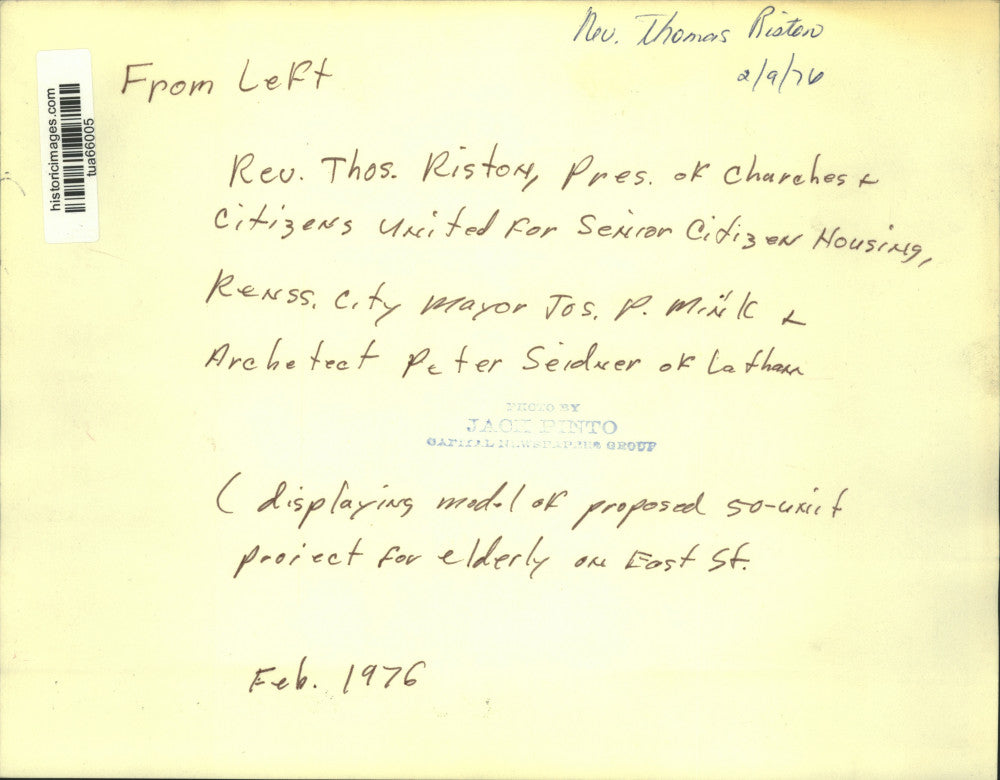 Rev. Thomas Riston
2/9/76
From Left
historicimages.com
tua66005
Rev. Thos. Riston, Pres. of Churches &
Citizens United for Senior Citizen Housing,
Renss. City Mayor Jos. P. Mink &
Archetect Peter Seidner of Latham
PHOTO BY
JACK PINTO
CAPITAL NEWSPAPERS GROUP
( displaying model of proposed 50-unit
project for elderly on East St.
Feb. 1976